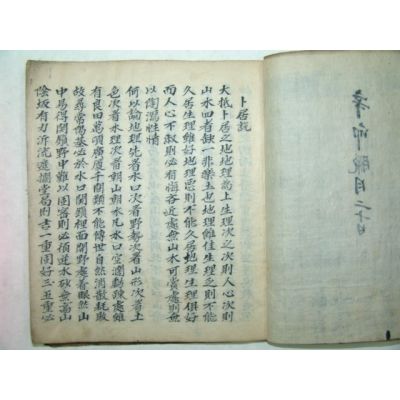 辛卯臘月二十日
卜居說
大抵卜居之地地理爲上生理次之次則人心次則
山水四者缺一非樂土也地理雖佳生理乏則不能
久居生理雖好地理惡則不能久居地理生理俱好
而人心不淑則必有悔吝近處無山水可賞處則無
以陶瀉性情
何以論地理次看野勢次看山形次看土
色次看水理次看朝山朝水凡水口空濶虧疎處雖
有良田萬頃廣廈千間類不能傳世自然消散耗敗
故尋基必求水口關鎖裡面開野處着眼然山
中易得關鎖野中難以固密則必須逆水砂無高山
陰坂有力沂流遮攔堂局則吉一重固好三五重